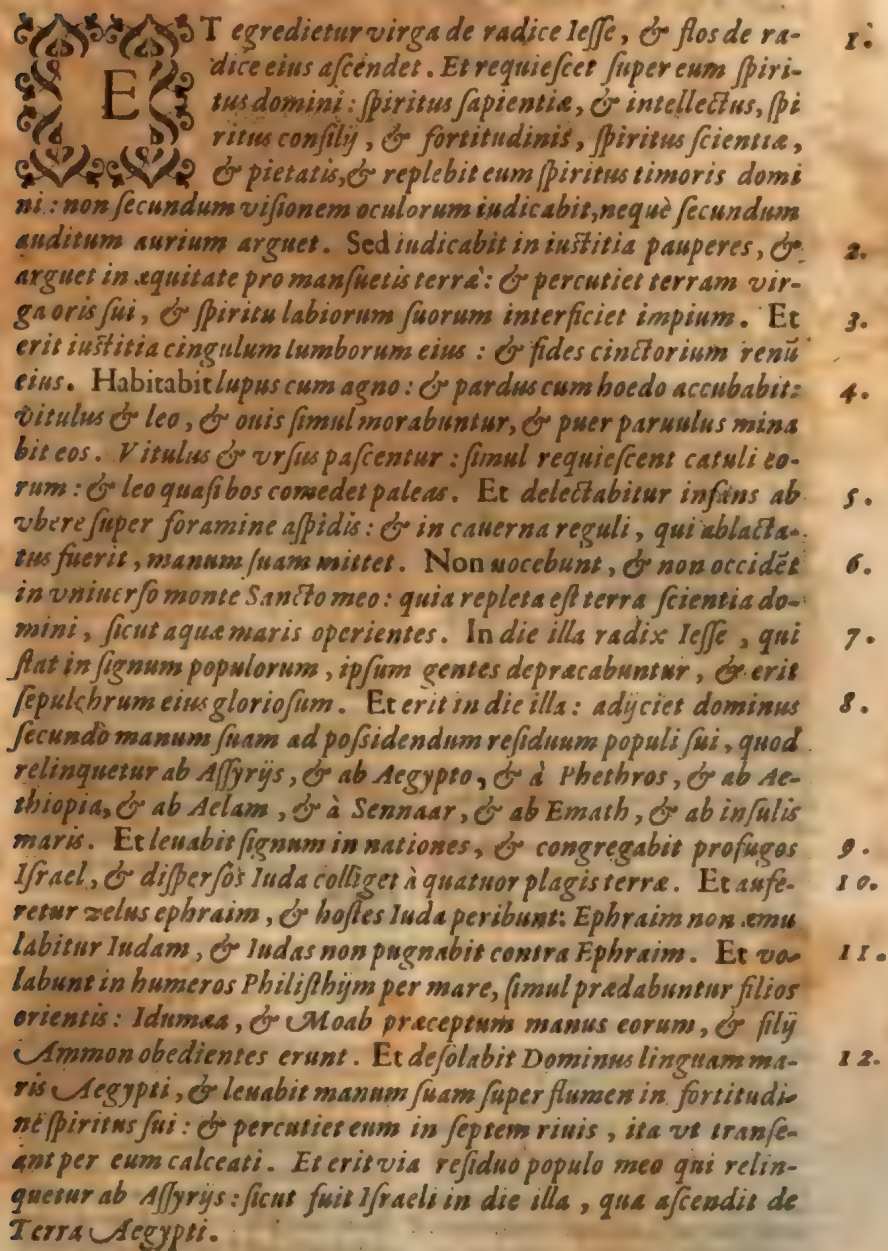 ET egredietur virga de radice Iesse, & flos de ra- 1.
dice eius ascendet. Et requiescet super eum spiri-
tus domini: spiritus sapientiæ, & intellectus, spi
ritus consilij, & fortitudinis, spiritus scientiæ,
& pietatis, & replebit eum spiritus timoris domi
ni: non secundum visionem oculorum iudicabit, nequè secundum
auditum aurium arguet. Sed iudicabit in iustitia pauperes, & 2.
arguet in æquitate pro mansuetis terræ: & percutiet terram vir-
ga oris sui, & spiritu labiorum suorum interficiet impium. Et 3.
erit iustitia cingulum lumborum eius: & fides cinctorium renū
eius. Habitabit lupus cum agno: & pardus cum hoedo accubabit: 4.
vitulus & leo, & ouis simul morabuntur, & puer paruulus mina
bit eos. Vitulus & vrsus pascentur: simul requiescent catuli eo-
rum: & leo quasi bos comedet paleas. Et delectabitur infans ab 5.
vbere super foramine aspidis: & in cauerna reguli, qui ablacta-
tus fuerit, manum suam mittet. Non nocebunt, & non occidēt 6.
in vniuerso monte Sancto meo: quia repleta est terra scientia do-
mini, sicut aquæ maris operientes. In die illa radix Iesse, qui 7.
stat in signum populorum, ipsum gentes depræcabuntur, & erit
sepulchrum eius gloriosum. Et erit in die illa: adijciet dominus 8.
secundò manum suam ad possidendum residuum populi sui, quod
relinquetur ab Assyrijs, & ab Aegypto, & à Phethros, & ab Ae-
thiopia, & ab Aelam, & à Sennaar, & ab Emath, & ab insulis
maris. Et leuabit signum in nationes, & congregabit profugos 9.
Israel, & dispersos Iuda colliget à quatuor plagis terræ. Et aufe- 10.
retur zelus ephraim, & hostes Iuda peribunt: Ephraim non æmu
labitur Iudam, & Iudas non pugnabit contra Ephraim. Et vo- 11.
labunt in humeros Philisthijm per mare, simul prædabuntur filios
orientis: Idumæa, & Moab præceptum manus eorum, & filij
Ammon obedientes erunt. Et desolabit Dominus linguam ma- 12.
ris Aegypti, & leuabit manum suam super flumen in fortitudi-
ne spiritus sui: & percutiet eum in septem riuis, ita vt transe-
ant per eum calceati. Et erit via residuo populo meo qui relin-
quetur ab Assyrijs: sicut fuit Israeli in die illa, qua ascendit de
Terra Aegypti.